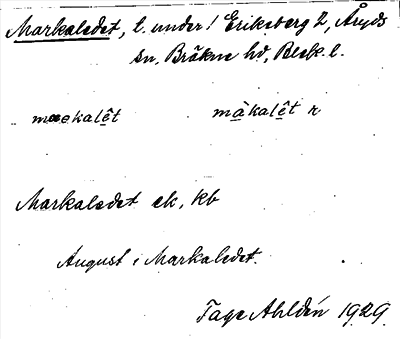 Markaledet, t. under! Eriksberg 2, Åryds
sn. Bräkne hd, Blek. l.
markalêt màkalêt r
Markaledet ek, kb
August i Markaledet.
Tage Ahldén 1929.